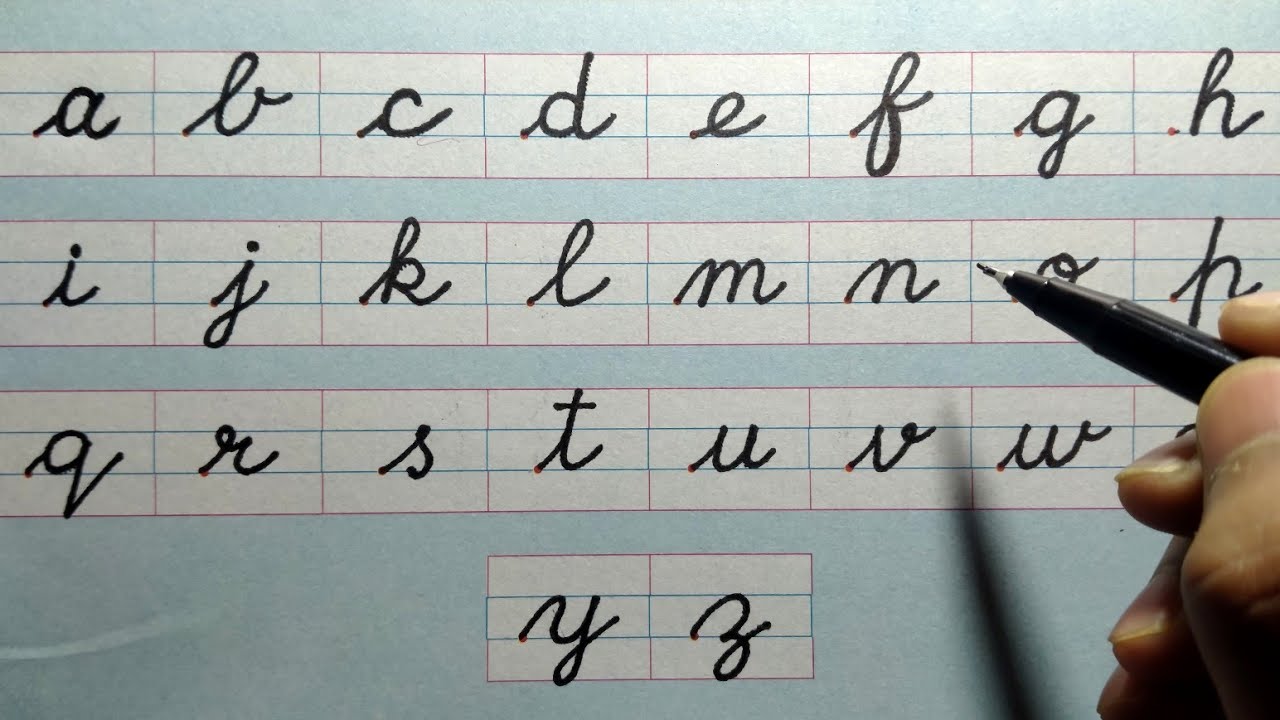 a b c d e f g h
i j k l m n o p
q r s t u v w
y z